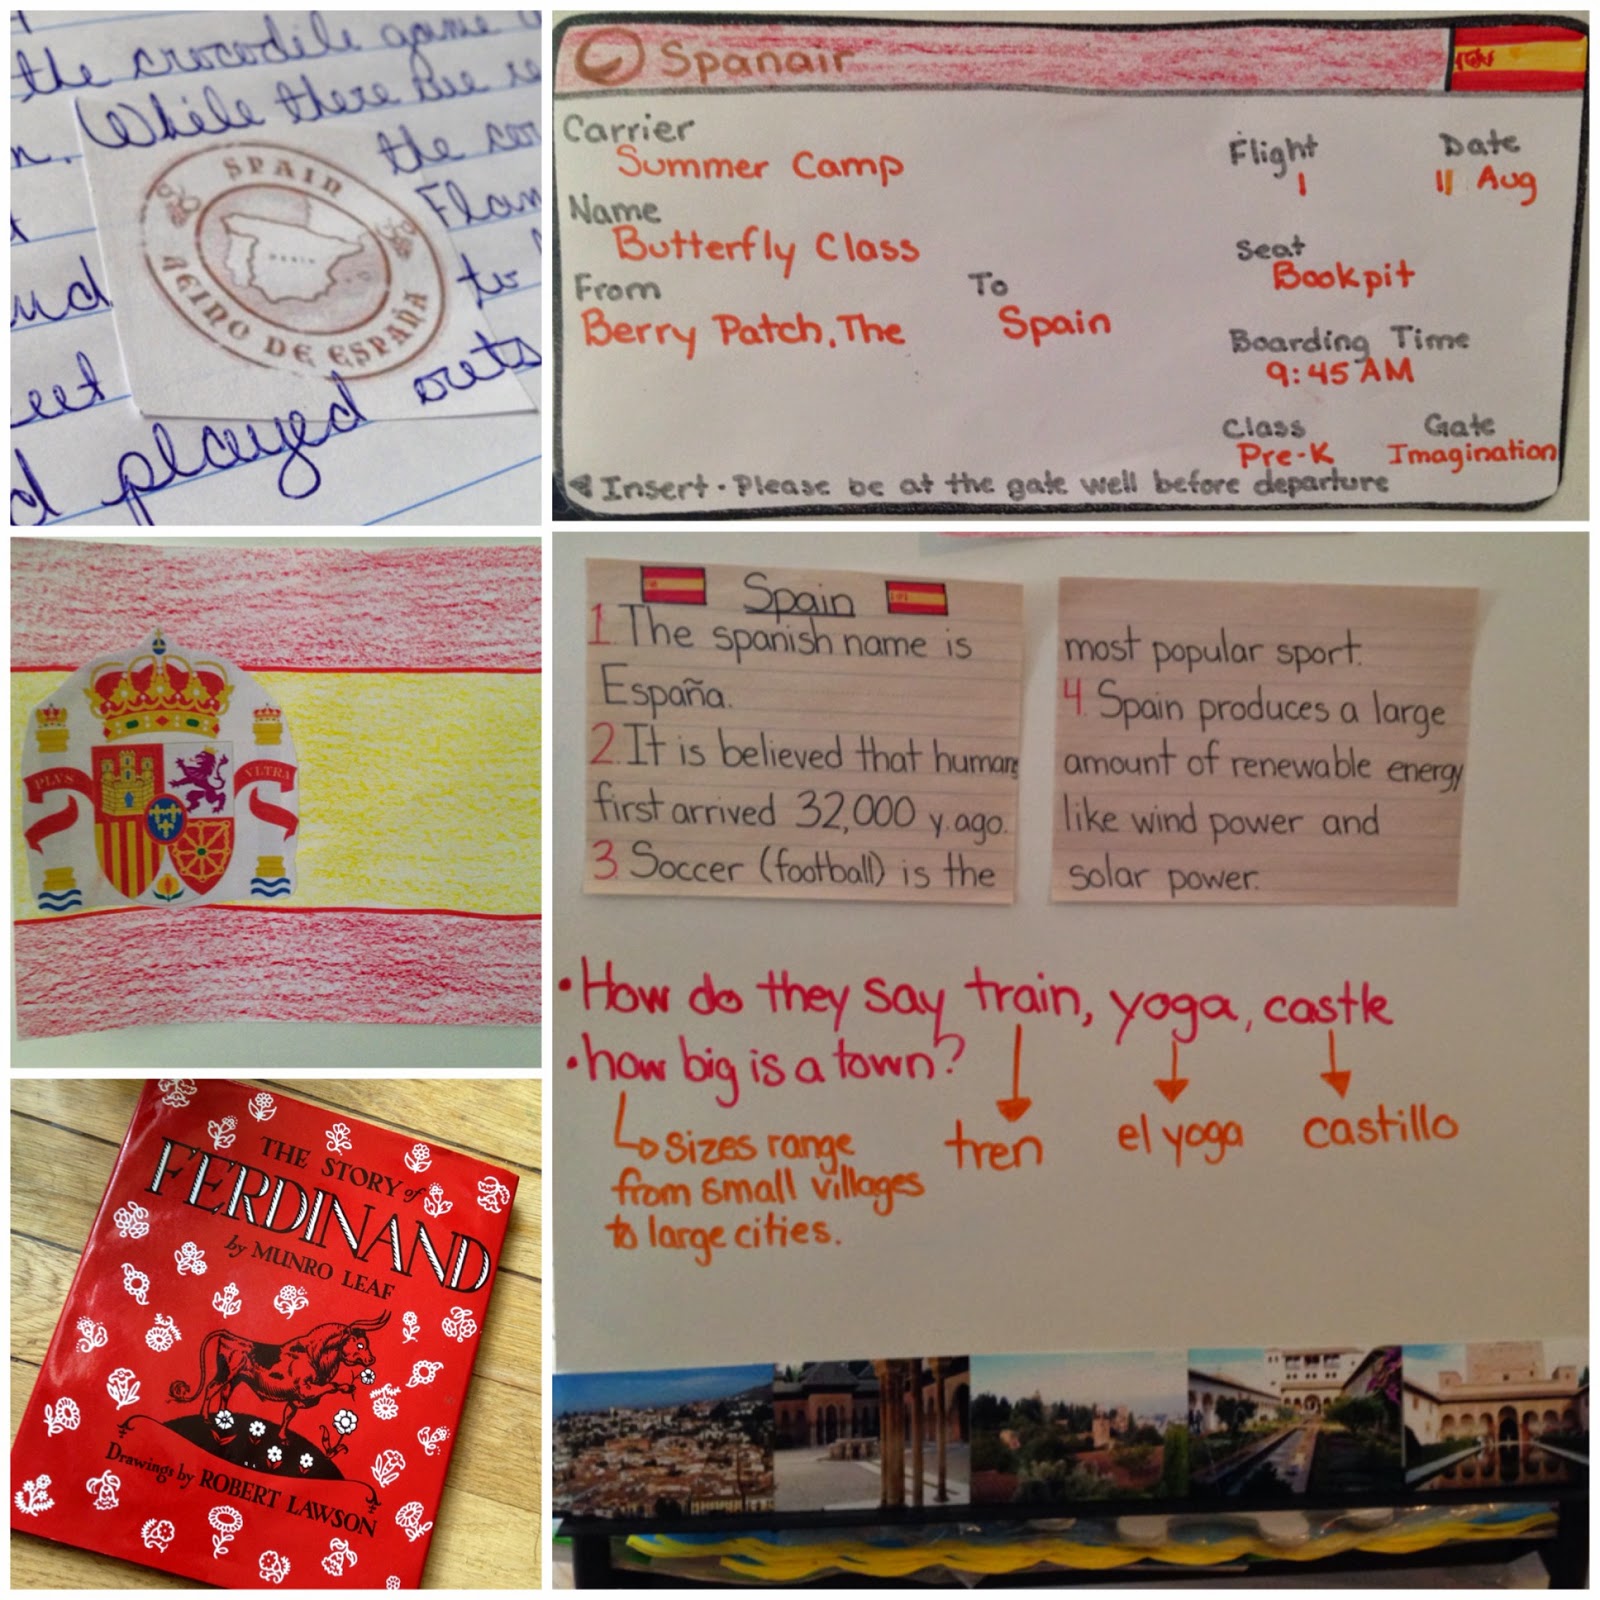 the crocodile game
While there
the
SPAIN
REINO DE ESPAÑA
SPAIN
to
played outs
Spanair
Carrier
Summer Camp
Name
Butterfly Class
From
Berry Patch, The
To
Spain
Flight
1
Date
11 Aug
Seat
Bookpit
Boarding Time
9:45 AM
Class
Pre-K
Gate
Imagination
Insert. Please be at the gate well before departure
PLVS
VLTRA
THE STORY of
FERDINAND
by MUNRO LEAF
Drawings by ROBERT LAWSON
Spain
1. The spanish name is
España.
2. It is believed that humans
first arrived 32,000 y. ago.
3. Soccer (football) is the
most popular sport.
4. Spain produces a large
amount of renewable energy
like wind power and
solar power.
• How do they say train, yoga, castle
• how big is a town?
sizes range
from small villages
to large cities.
tren
el yoga
castillo